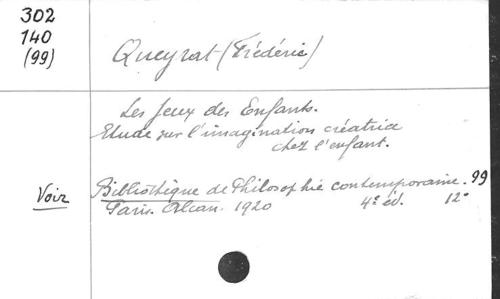 302
140
(99)
Queyrat (Frédéric)
Les Jeux des Enfants.
Etude sur l'imagination créatrice
chez l'enfant.
Voir Bibliothèque de Philosophie contemporaine. 99
Paris. Alcan. 1920 4e éd. 12°